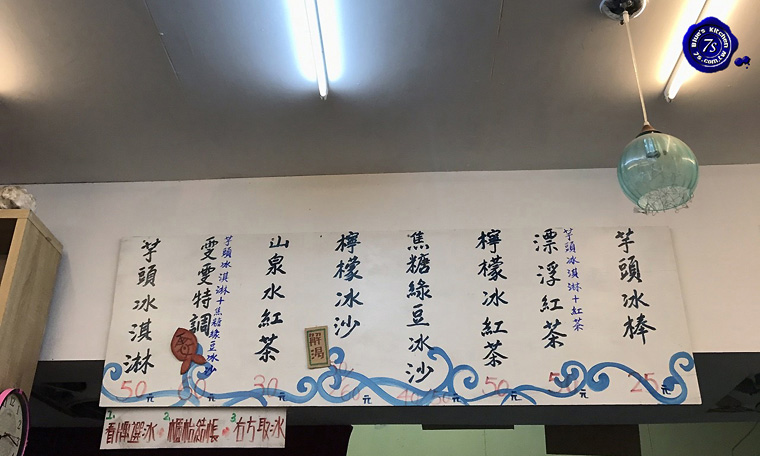 芋頭冰棒
25元
漂浮紅茶
芋頭冰淇淋+紅茶
50元
檸檬冰紅茶
50元
焦糖綠豆冰沙
40 50元
檸檬冰沙
60元
解渴
山泉水紅茶
30元
雯雯特調
芋頭冰淇淋+焦糖綠豆冰沙
60元
芋頭冰淇淋
50元
1.看牌選冰 2.櫃枱結帳 3.右方取冰
Blue's Kitchen
7s
7s.com.tw